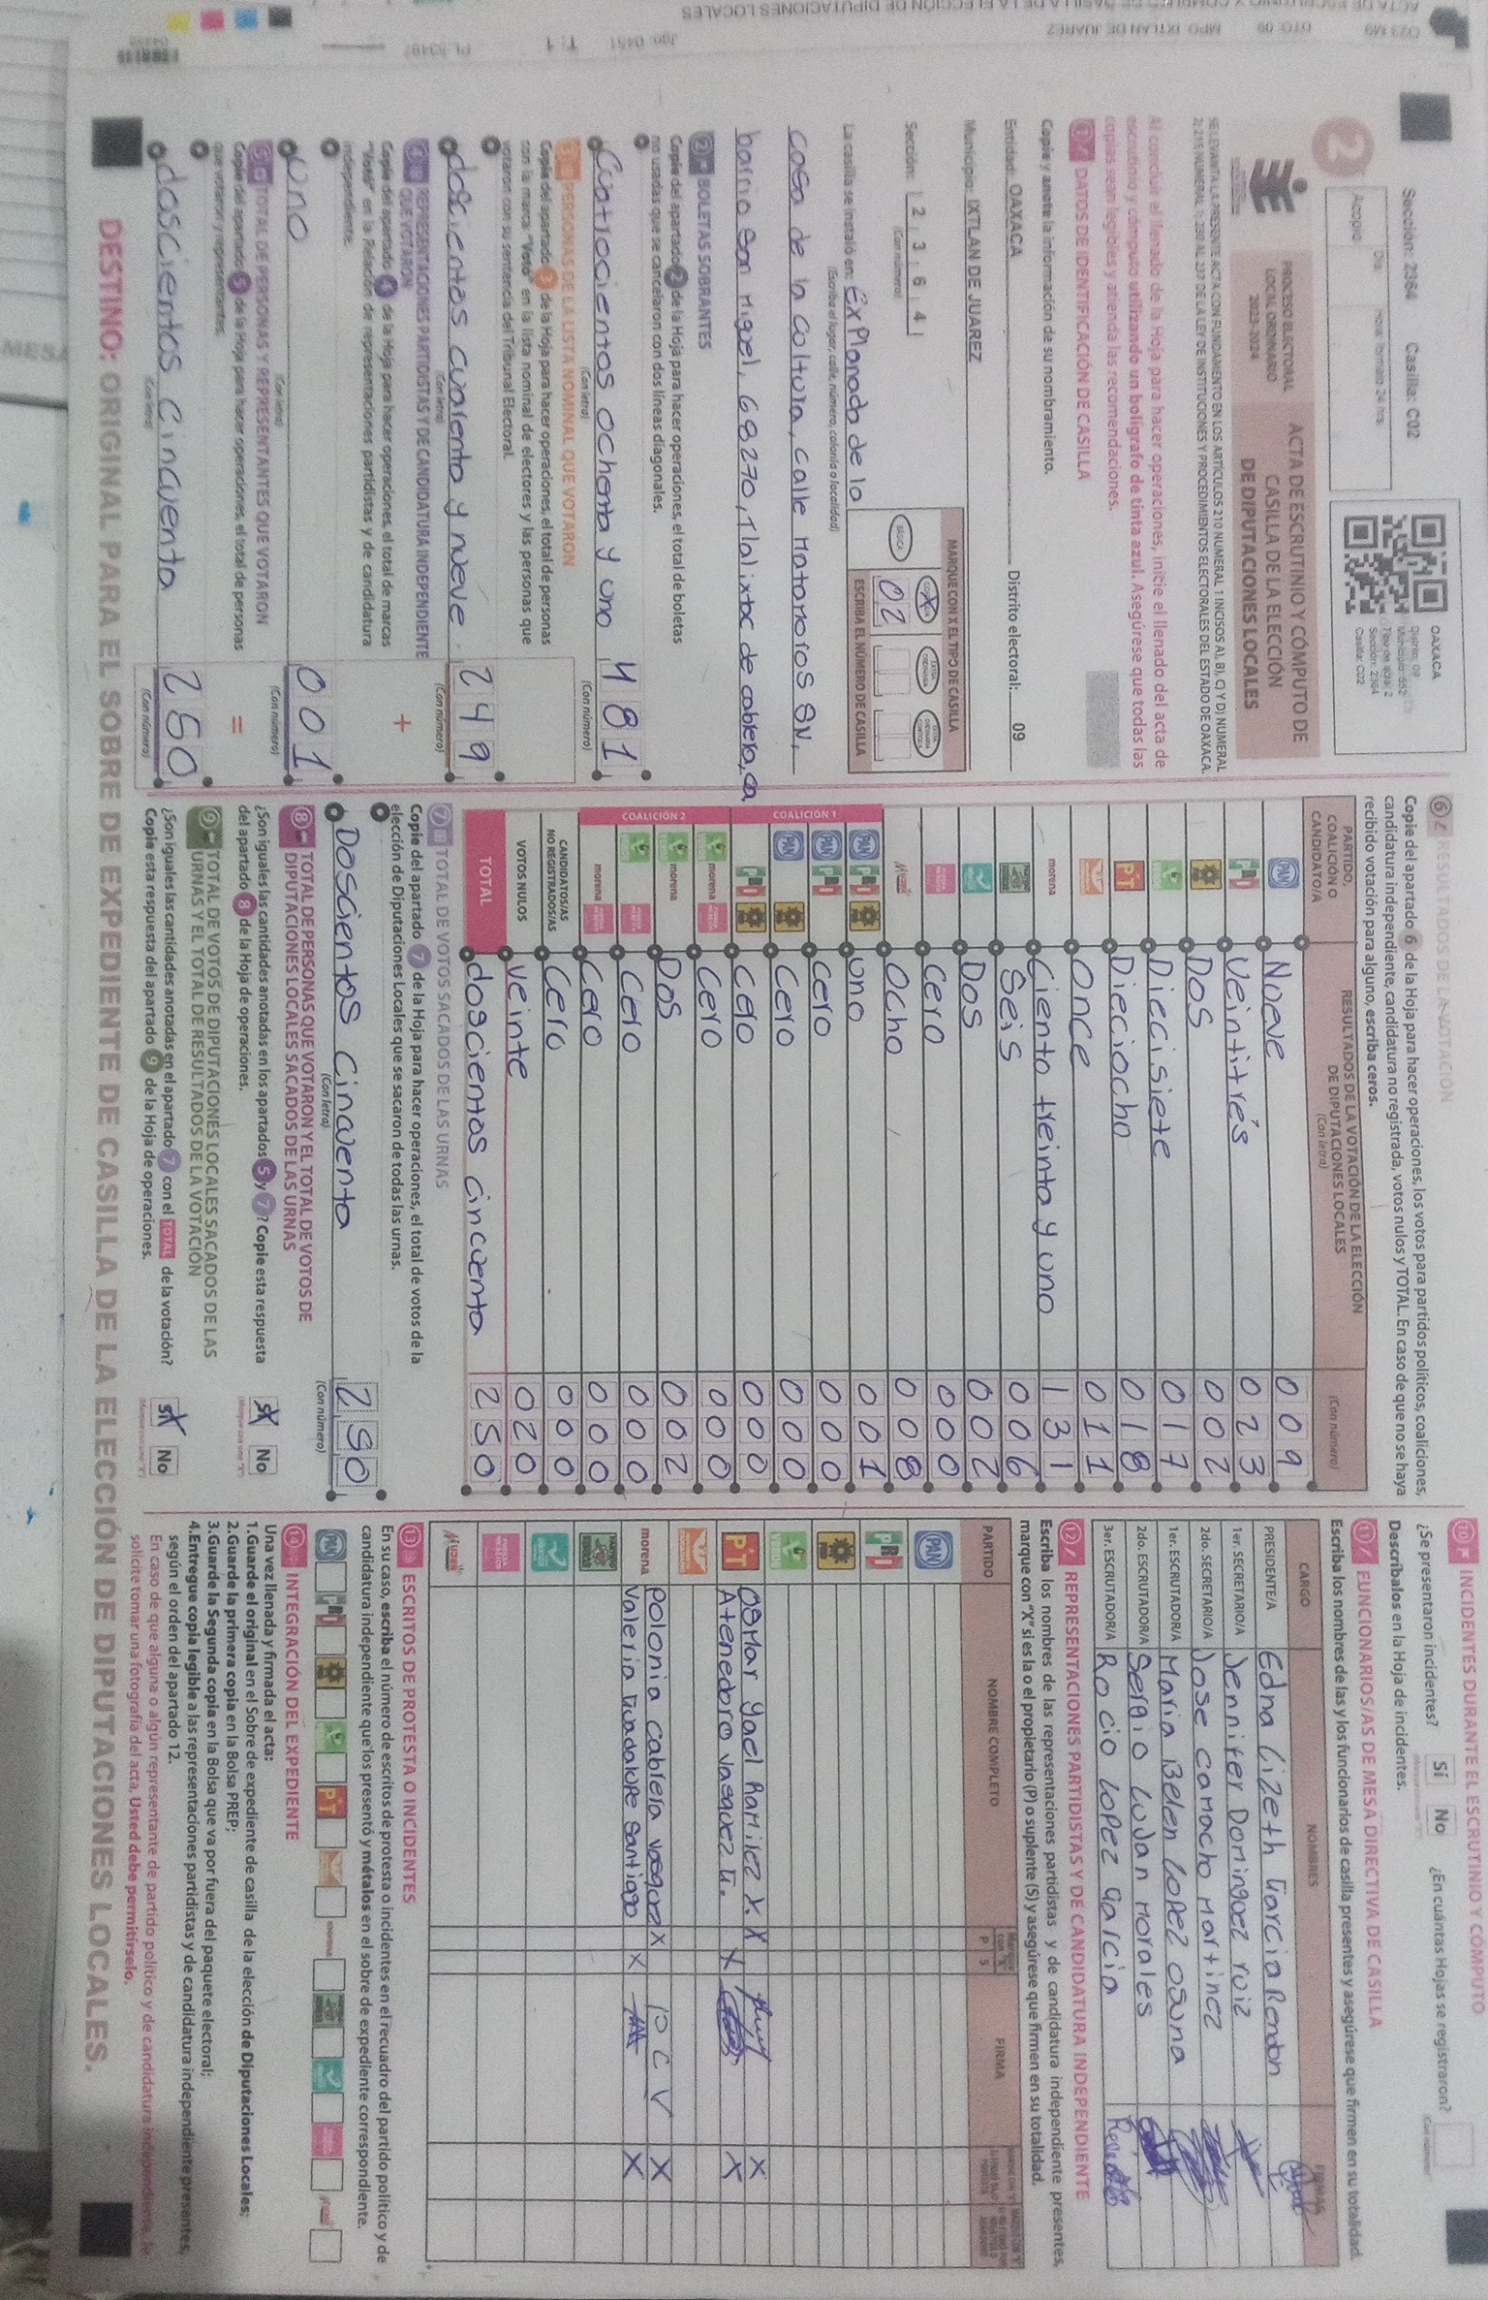 Sección: 2364 Casilla: C02
2
Acopio
Día:
Hora: formato 24 hrs.
OAXACA
Distrito: 09
Sección: 2364
Casilla: C02
PROCESO ELECTORAL
LOCAL ORDINARIO
2023-2024
ACTA DE ESCRUTINIO Y CÓMPUTO DE
CASILLA DE LA ELECCIÓN
DE DIPUTACIONES LOCALES
SE LEVANTA LA PRESENTE ACTA CON FUNDAMENTO EN LOS ARTÍCULOS 210 NUMERAL 1 INCISOS A), B), C) Y D) NUMERAL
2; 215 NUMERAL 1; 230 AL 237 DE LA LEY DE INSTITUCIONES Y PROCEDIMIENTOS ELECTORALES DEL ESTADO DE OAXACA.
Al concluir el llenado de la Hoja para hacer operaciones, inicie el llenado del acta de
escrutinio y cómputo utilizando un bolígrafo de tinta azul. Asegúrese que todas las
copias sean legibles y atienda las recomendaciones.
1 DATOS DE IDENTIFICACIÓN DE CASILLA
Copie y anote la información de su nombramiento.
Entidad: OAXACA Distrito electoral: 09
Municipio: IXTLAN DE JUAREZ
Sección: 2 3 6 4
(Con número)
MARQUE CON X EL TIPO DE CASILLA
BÁSICA
02
ESCRIBA EL NÚMERO DE CASILLA
La casilla se instaló en: ExPlanada de la
(Escriba el lugar, calle, número, colonia o localidad)
casa de la cultura, calle Matamoros SN,
barrio san Miguel, 68270, Tlalixtac de cabrera, oa
2 BOLETAS SOBRANTES
Copie del apartado 2 de la Hoja para hacer operaciones, el total de boletas
no usadas que se cancelaron con dos líneas diagonales.
Cuatrocientos ochenta y uno 481
(Con letra) (Con número)
3 PERSONAS DE LA LISTA NOMINAL QUE VOTARON
Copie del apartado 3 de la Hoja para hacer operaciones, el total de personas
con la marca "Votó" en la lista nominal de electores y las personas que
votaron con su sentencia del Tribunal Electoral.
doscientos cuarenta y nueve. 249
(Con letra) (Con número)
4 REPRESENTACIONES PARTIDISTAS Y DE CANDIDATURA INDEPENDIENTE
QUE VOTARON
+
Copie del apartado 4 de la Hoja para hacer operaciones, el total de marcas
"Votó" en la Relación de representaciones partidistas y de candidatura
independiente.
Uno 001
(Con letra) (Con número)
5 TOTAL DE PERSONAS Y REPRESENTANTES QUE VOTARON
=
Copie del apartado 5 de la Hoja para hacer operaciones, el total de personas
que votaron y representantes.
doscientos Cincuenta 250
(Con letra) (Con número)
6 RESULTADOS DE LA VOTACIÓN
Copie del apartado 6 de la Hoja para hacer operaciones, los votos para partidos políticos, coaliciones,
candidatura independiente, candidatura no registrada, votos nulos y TOTAL. En caso de que no se haya
recibido votación para alguno, escriba ceros.
PARTIDO,
COALICIÓN O
CANDIDATO/A
RESULTADOS DE LA VOTACIÓN DE LA ELECCIÓN
DE DIPUTACIONES LOCALES
(Con letra)
(Con número)
PAN Nueve 009
PRI Veintitrés 023
Dos 002
Diecisiete 017
PT Dieciocho 018
Once 011
morena Ciento treinta y uno 131
Seis 006
Dos 002
Cero 000
Ocho 008
COALICIÓN 1
PAN PRI uno 001
PAN PRI cero 000
PAN Cero 000
PRI Cero 000
COALICIÓN 2
morena Cero 000
morena Dos 002
Cero 000
morena Cero 000
CANDIDATOS/AS
NO REGISTRADOS/AS Cero 000
VOTOS NULOS veinte 020
TOTAL doscientos cincuenta 250
7 TOTAL DE VOTOS SACADOS DE LAS URNAS
Copie del apartado 7 de la Hoja para hacer operaciones, el total de votos de la
elección de Diputaciones Locales que se sacaron de todas las urnas.
Doscientos Cincuenta 250
(Con letra) (Con número)
8 TOTAL DE PERSONAS QUE VOTARON Y EL TOTAL DE VOTOS DE
DIPUTACIONES LOCALES SACADOS DE LAS URNAS
¿Son iguales las cantidades anotadas en los apartados 5 y 7? Copie esta respuesta
del apartado 8 de la Hoja de operaciones.
Sí No
9 TOTAL DE VOTOS DE DIPUTACIONES LOCALES SACADOS DE LAS
URNAS Y EL TOTAL DE RESULTADOS DE LA VOTACIÓN
¿Son iguales las cantidades anotadas en el apartado 7 con el TOTAL de la votación?
Copie esta respuesta del apartado 9 de la Hoja de operaciones.
Sí No
10 INCIDENTES DURANTE EL ESCRUTINIO Y CÓMPUTO
¿Se presentaron incidentes? Sí No ¿En cuántas Hojas se registraron?
(Con número)
Descríbalos en la Hoja de incidentes.
11 FUNCIONARIOS/AS DE MESA DIRECTIVA DE CASILLA
Escriba los nombres de las y los funcionarios de casilla presentes y asegúrese que firmen en su totalidad.
CARGO NOMBRES FIRMAS
PRESIDENTE/A Edna Lizeth Garcia Rendon
1er. SECRETARIO/A Jennifer Dominguez ruiz
2do. SECRETARIO/A Jose Camacho Martinez
1er. ESCRUTADOR/A Maria Belen Lopez Osuna
2do. ESCRUTADOR/A Sergio Lujan Morales
3er. ESCRUTADOR/A Rocio Lopez Garcia
12 REPRESENTACIONES PARTIDISTAS Y DE CANDIDATURA INDEPENDIENTE
Escriba los nombres de las representaciones partidistas y de candidatura independiente presentes,
marque con "X" si es la o el propietario (P) o suplente (S) y asegúrese que firmen en su totalidad.
PARTIDO NOMBRE COMPLETO P S FIRMA
PAN
PRI
PT Osmar Yael Ramirez X. X X
Atenedoro Vasquez G. X X
morena Polonia Cabrera Vasquez X P C V X
Valeria Guadalupe Santiago X X
13 ESCRITOS DE PROTESTA O INCIDENTES
En su caso, escriba el número de escritos de protesta o incidentes en el recuadro del partido político y de
candidatura independiente que los presentó y métalos en el sobre de expediente correspondiente.
PAN PRI PT morena
14 INTEGRACIÓN DEL EXPEDIENTE
Una vez llenada y firmada el acta:
1.Guarde el original en el Sobre de expediente de casilla de la elección de Diputaciones Locales;
2.Guarde la primera copia en la Bolsa PREP;
3.Guarde la Segunda copia en la Bolsa que va por fuera del paquete electoral;
4.Entregue copia legible a las representaciones partidistas y de candidatura independiente presentes,
según el orden del apartado 12.
En caso de que alguna o algún representante de partido político y de candidatura independiente, le
solicite tomar una fotografía del acta, Usted debe permitírselo.
DESTINO: ORIGINAL PARA EL SOBRE DE EXPEDIENTE DE CASILLA DE LA ELECCIÓN DE DIPUTACIONES LOCALES.